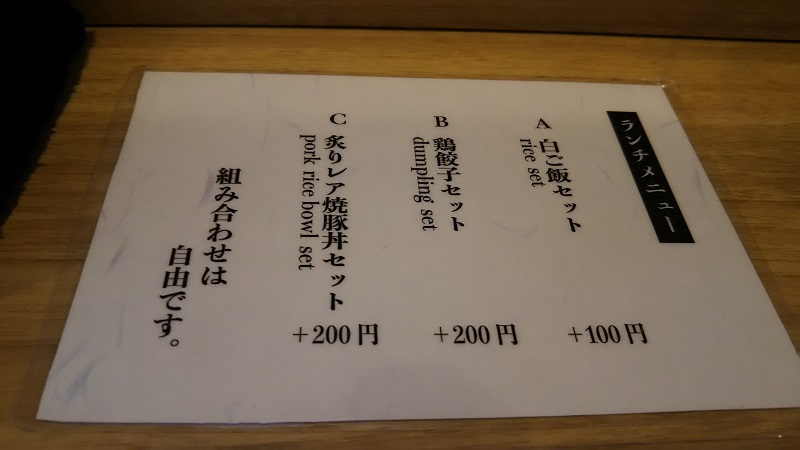 ランチメニュー
A 白ご飯セット
rice set
+100円
B 鶏餃子セット
dumpling set
+200円
C 炙りレア焼豚丼セット
pork rice bowl set
+200円
組み合わせは
自由です。